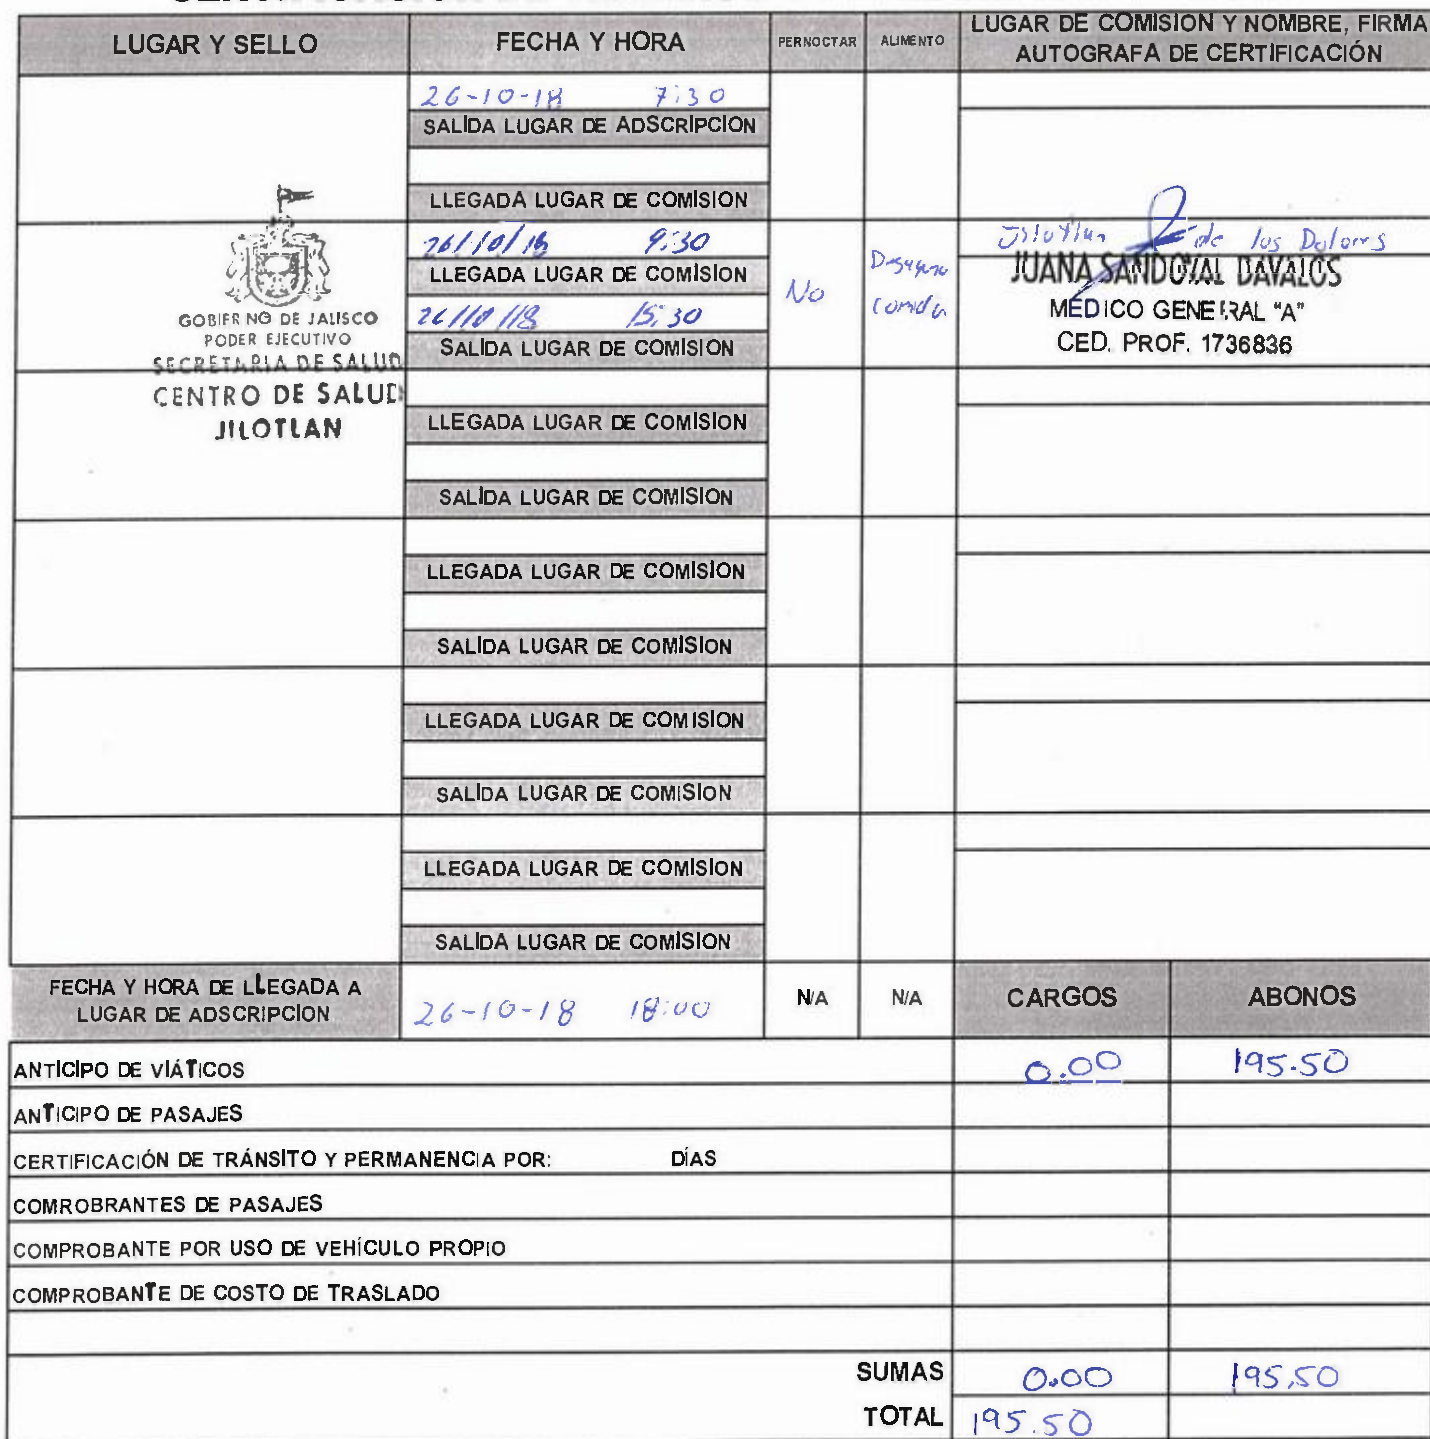 LUGAR Y SELLO
FECHA Y HORA
PERNOCTAR
ALIMENTO
LUGAR DE COMISION Y NOMBRE, FIRMA
AUTOGRAFA DE CERTIFICACIÓN
26-10-18 7:30
SALIDA LUGAR DE ADSCRIPCION
LLEGADA LUGAR DE COMISION
GOBIERNO DE JALISCO
PODER EJECUTIVO
SECRETARIA DE SALUD
CENTRO DE SALUD
JILOTLAN
26/10/18 9:30
LLEGADA LUGAR DE COMISION
26/10/18 15:30
SALIDA LUGAR DE COMISION
No
Desayuno
comida
Jilotlan de los Dolores
JUANA SANDOVAL DAVALOS
MEDICO GENERAL "A"
CED. PROF. 1736836
LLEGADA LUGAR DE COMISION
SALIDA LUGAR DE COMISION
LLEGADA LUGAR DE COMISION
SALIDA LUGAR DE COMISION
LLEGADA LUGAR DE COMISION
SALIDA LUGAR DE COMISION
LLEGADA LUGAR DE COMISION
SALIDA LUGAR DE COMISION
FECHA Y HORA DE LLEGADA A
LUGAR DE ADSCRIPCION
26-10-18 18:00
N/A
N/A
CARGOS
ABONOS
ANTICIPO DE VIÁTICOS 0.00 195.50
ANTICIPO DE PASAJES
CERTIFICACIÓN DE TRÁNSITO Y PERMANENCIA POR: DÍAS
COMROBRANTES DE PASAJES
COMPROBANTE POR USO DE VEHÍCULO PROPIO
COMPROBANTE DE COSTO DE TRASLADO
SUMAS 0.00 195.50
TOTAL 195.50